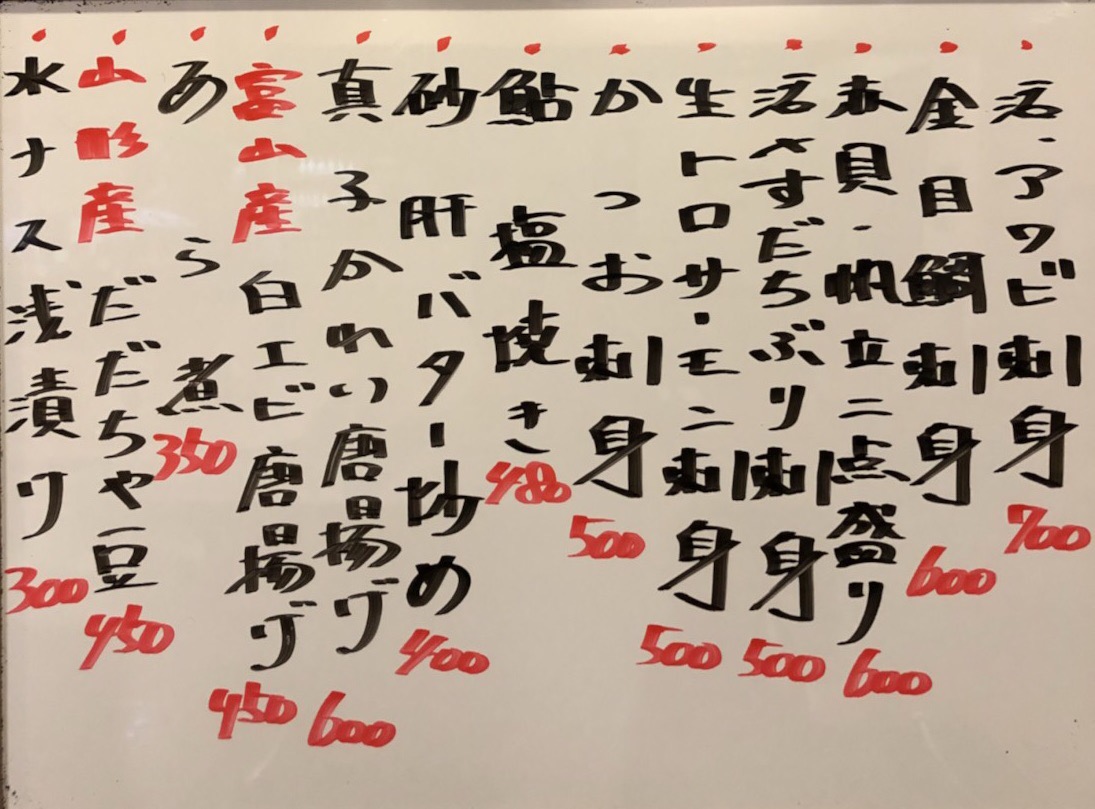 活・アワビ刺身700
金目鯛刺身600
赤貝・帆立二点盛り600
活〆すだちぶり刺身500
生トロサーモン刺身500
かつお刺身500
鮎塩焼き480
砂肝バター炒め400
真子かれい唐揚げ600
富山産白エビ唐揚げ450
あら煮350
山形産だだちゃ豆450
水ナス浅漬け300